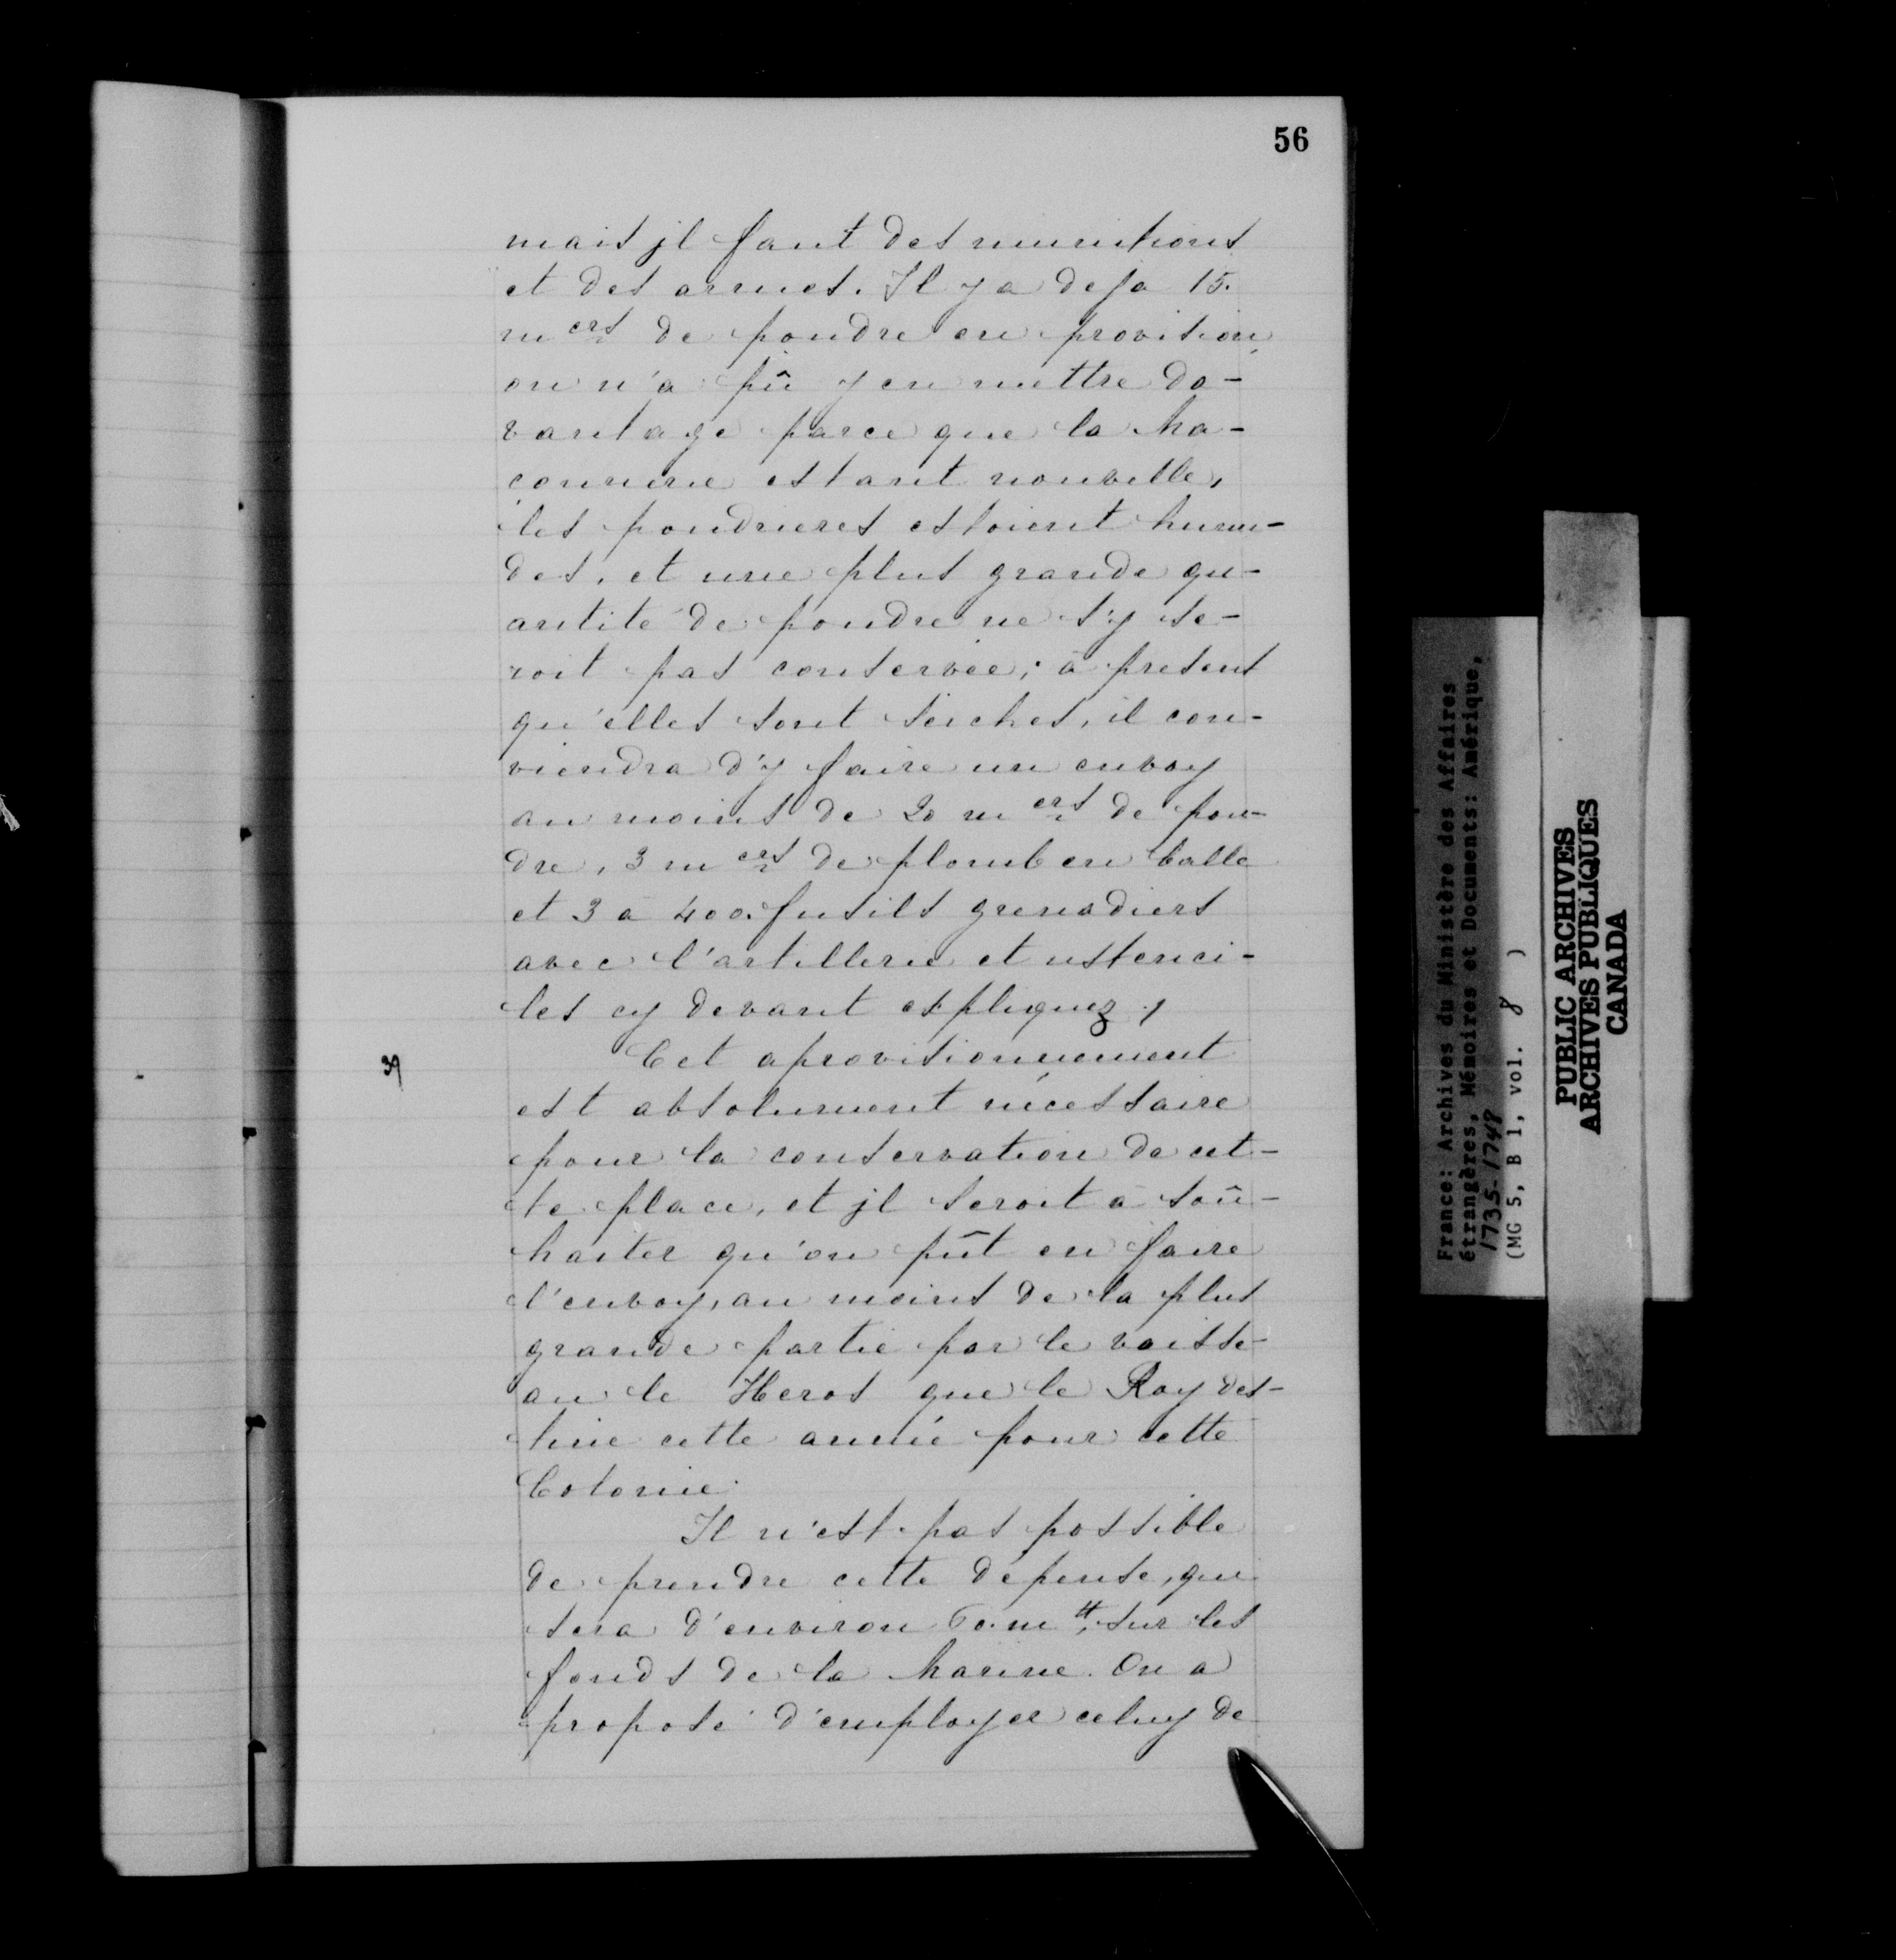 56
mais jl faut des munitions
et des armes. Il y a deja 15.
m ers de poudre en provision
on n'a pû y en mettre da-
vantage parce que la Ma-
connerie estant nouvelle,
les poudrieres estoient humi-
des, et une plus grande qu-
antité de poudre ne s'y se-
roit pas conservée; à present
qu'elles sont seiches, il con-
viendra d'y faire un envoy
au moins de 20 m ers de pou-
dre, 3 m ers de plomb en balle
et 3 à 400. fusils grenadiers
avec l'artillerie et ustenci-
les cy devant expliquez.,
Cet aprovisionnement
est absolument nécessaire
pour la conservation de cet-
te place, et jl seroit à soû-
haiter qu'on pût en faire
l'envoy, au moins de la plus
grande partie par le vaisse-
au le Heros que le Roy des-
tine cette année pour cette
Colonie.
Il n'est pas possible
de prendre cette dépense, qui
sera d'environ 60. m ₶, sur les
fonds de la Marine. On a
proposé d'employer celuy de
France: Archives du Ministère des Affaires
étrangères, Mémoires et Documents: Amérique,
1735-1748
(MG 5, B 1, vol. 8 )
PUBLIC ARCHIVES
ARCHIVES PUBLIQUES
CANADA